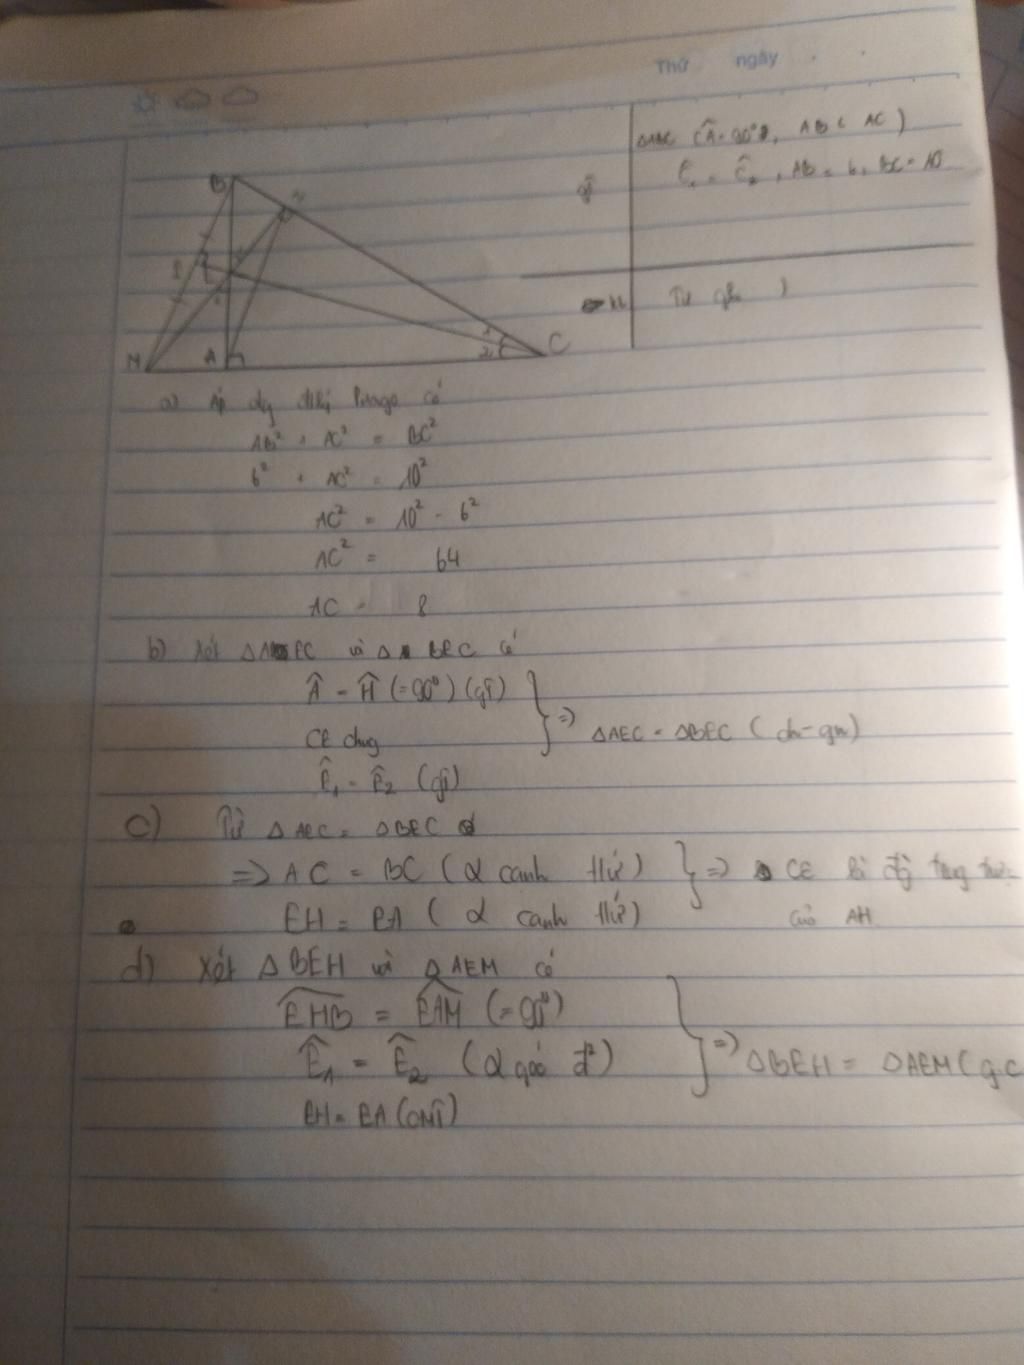 Thứ ngày
ΔABC (Â = 90°, AB < AC)
gt Ĉ₁ = Ĉ₂, AB = 6, BC = 10
Tự
B H
I
M A C
1
2
a) Áp dg đlí Pitago có
AB² + AC² = BC²
6² + AC² = 10²
AC² = 10² - 6²
AC² = 64
AC = 8
b) Xét ΔAEC và Δ BEC có
Â = Ĥ (= 90°) (gt)
CE chug
Ê₁ = Ê₂ (gt)
⇒ ΔAEC = ΔBEC (ch-gn)
c) Từ ΔAEC = ΔBEC
⇒ AC = BC (2 cạnh t/ứ)
EH = EA (2 cạnh t/ứ)
⇒ CE là đg trug trực
của AH
d) Xét ΔBEH và ΔAEM có
EHB = EAM (= 90°)
Ê₁ = Ê₂ (2 góc đ²)
EH = EA (CMT)
⇒ ΔBEH = ΔAEM (g.c